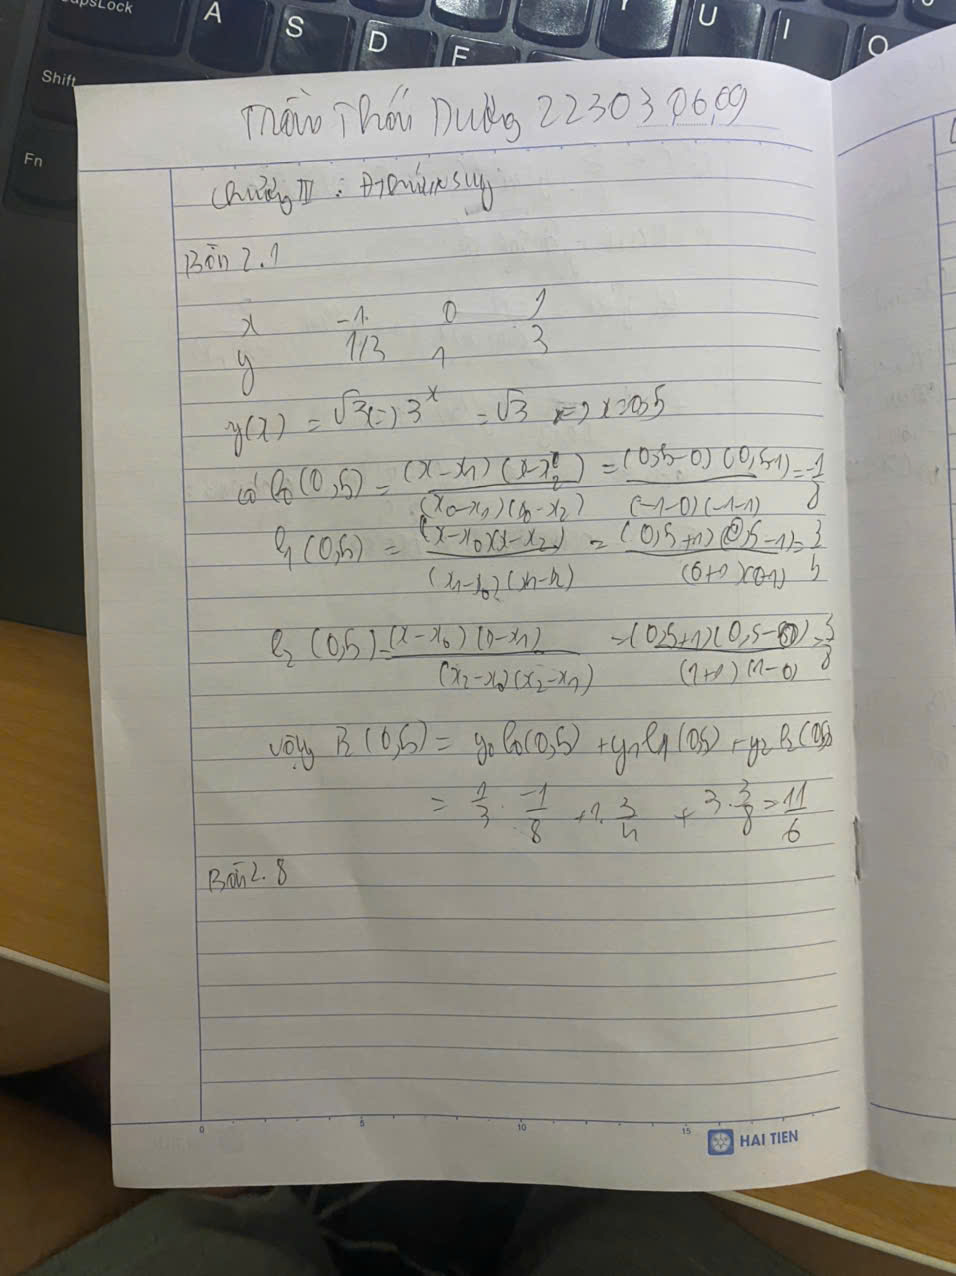 CapsLock A S D F Y U I O
Shift
Fn
Trần Thái Dương 223030609
Chương III :
Bài 2.1
x -1 0 1
y 1/3 1 3
y(x) = √3 (=) 3^x = √3 (=) x = 0,5
có l0 (0,5) = (x-x1) (x-x2) / (x0-x1) (x0-x2) = (0,5-0) (0,5-1) / (-1-0) (-1-1) = -1/8
l1 (0,5) = (x-x0)(x-x2) / (x1-x0) (x1-x2) = (0,5+1) (0,5-1) / (0+1)(0-1) = 3/4
l2 (0,5) = (x-x0) (x-x1) / (x2-x0)(x2-x1) = (0,5+1) (0,5-0) / (1+1) (1-0) = 3/8
vậy P2 (0,5) = y0 l0 (0,5) + y1 l1 (0,5) + y2 l2 (0,5)
= 1/3 . -1/8 + 1. 3/4 + 3. 3/8 = 11/6
Bài 2.8
0 5 10 15
HAI TIEN